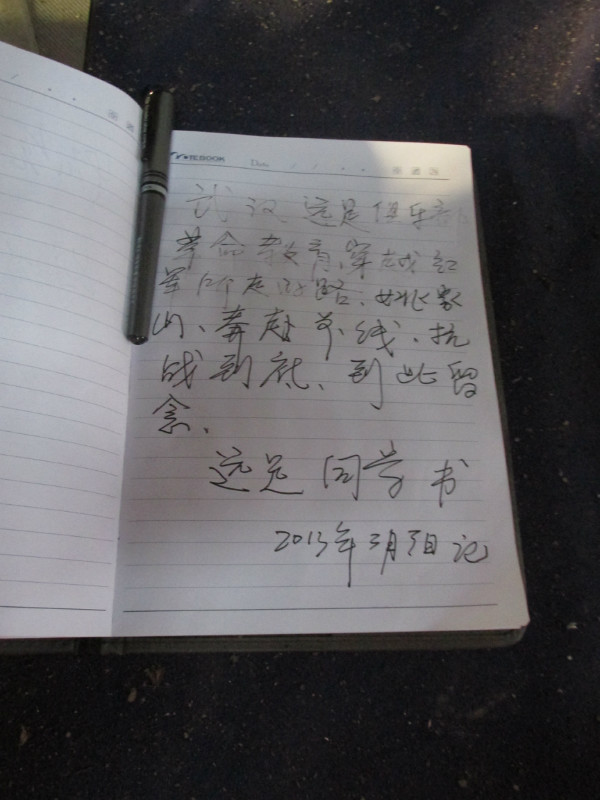 NOTEBOOK Date
武汉远足俱乐部
革命教育,穿越红
军所走的路、姚家
山、奔赴前线、抗
战到底、到此留
念、
远足同学书
2013年3月3日记